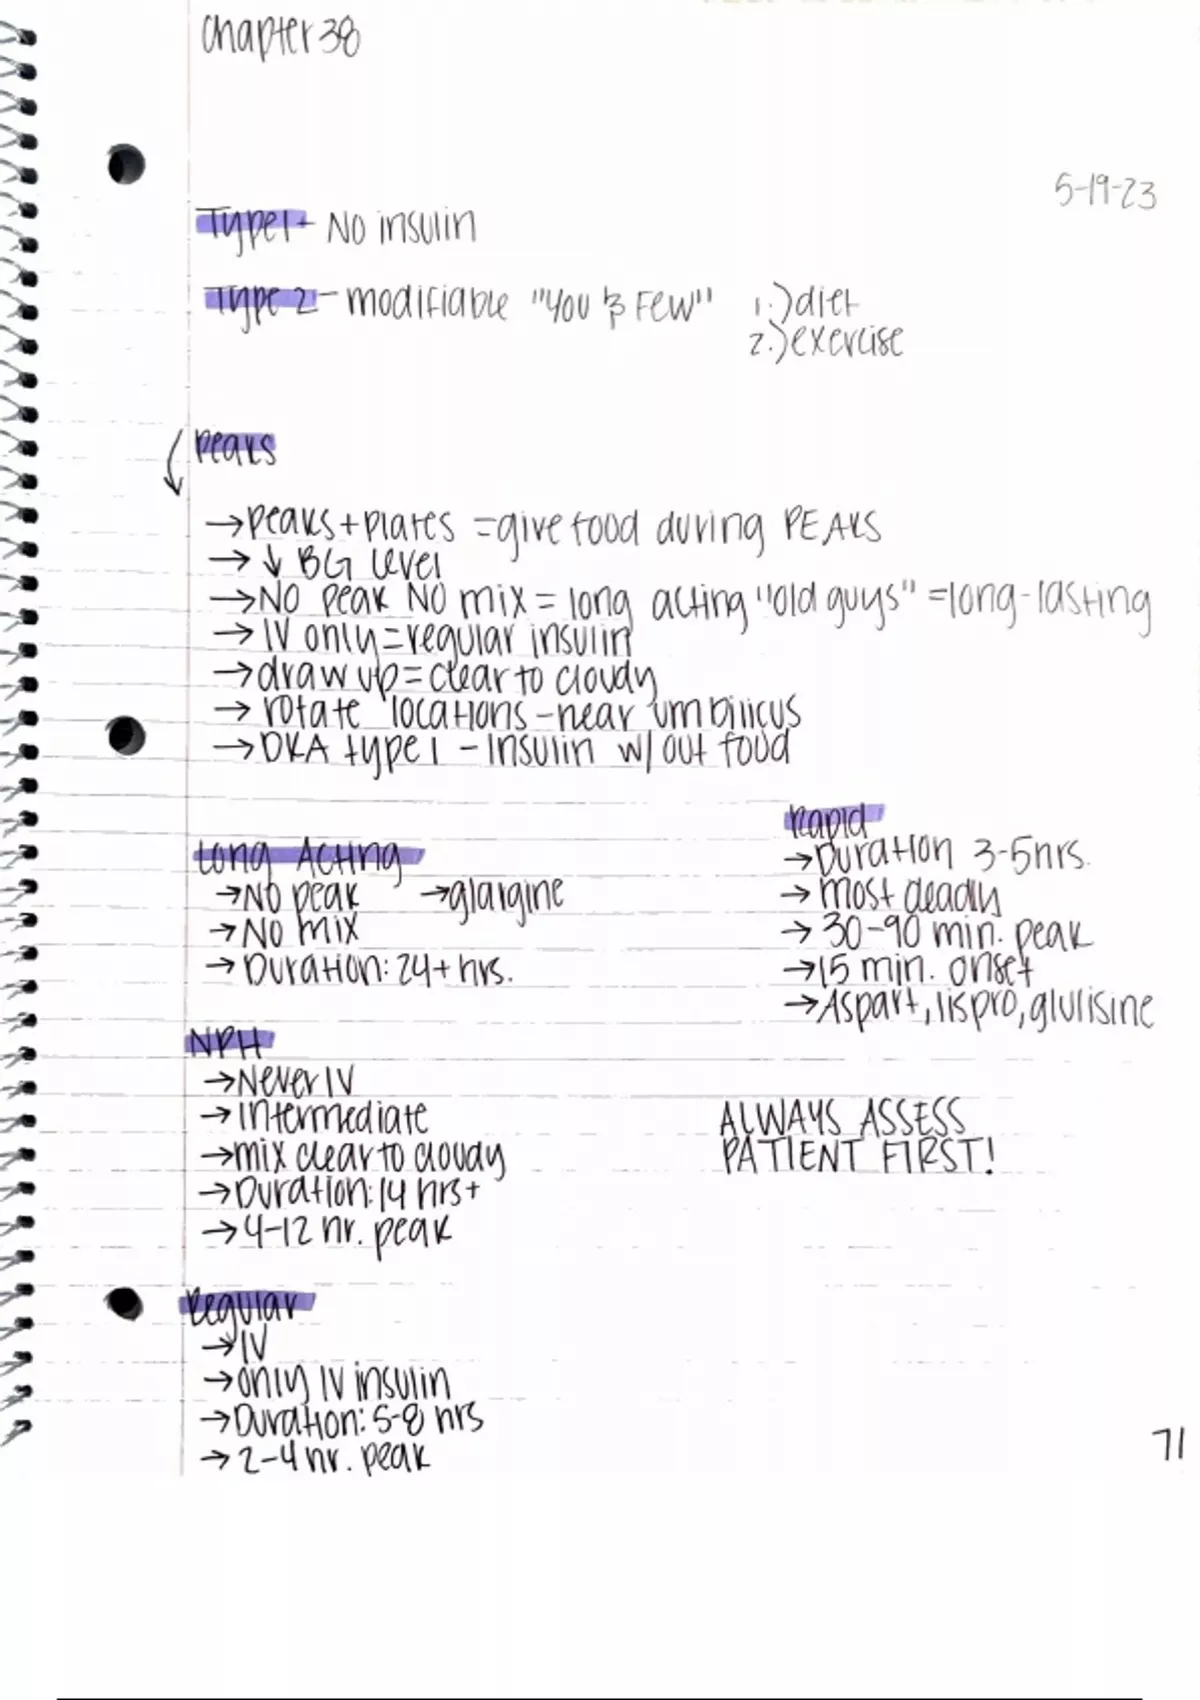 Chapter 38
5-19-23
Type 1 - No insulin
Type 2 - modifiable "You & Few" 1.) diet
2.) exercise
Peaks
→ Peaks + Plates = give food during PEAKS
→ ↓ BG level
→ No peak No mix = long acting "old guys" = long-lasting
→ IV only = regular insulin
→ draw up = clear to cloudy
→ rotate locations - near umbilicus
→ DKA type 1 - Insulin w/out food
Long Acting
→ No peak → glargine
→ No mix
→ Duration: 24+ hrs.
Rapid
→ Duration 3-5 hrs.
→ Most deadly
→ 30-90 min. peak
→ 15 min. onset
→ Aspart, lispro, glulisine
NPH
→ Never IV
→ Intermediate
→ mix clear to cloudy
→ Duration: 14 hrs+
→ 4-12 hr. peak
ALWAYS ASSESS
PATIENT FIRST!
Regular
→ IV
→ only IV insulin
→ Duration: 5-8 hrs
→ 2-4 hr. peak
71